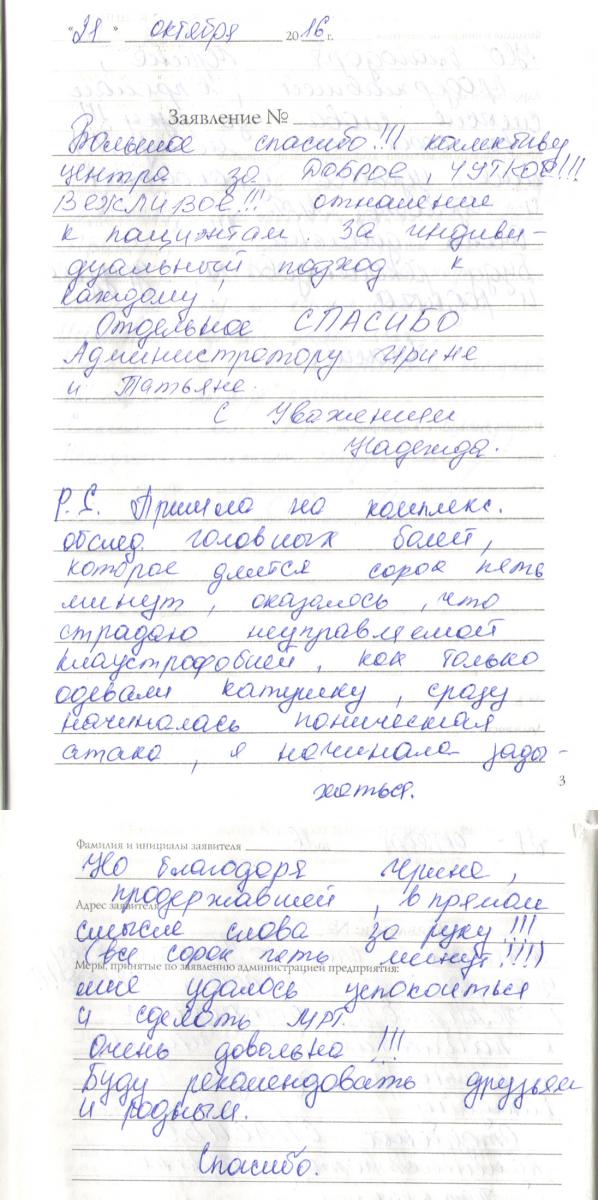 "21" октября 2016 г.
Заявление №
Большое спасибо!!! коллективу
центра за Доброе, ЧУТКОЕ!!!
ВЕЖЛИВОЕ!!! отношение
к пациентам. За индиви-
дуальный подход к
каждому,
Отдельное СПАСИБО
Администратору Ирине
и Татьяне.
С Уважением
Надежда.
P.S. Пришла на комплекс.
обслед. головных болей,
которое длится сорок пять
минут, оказалось, что
страдаю неуправляемой
клаустрофобией, как только
одевали катушку, сразу
начиналась паническая
атака, я начинала зады-
хаться.
3
Фамилия и инициалы заявителя
Но благодаря Ирине,
Адрес заявителя
продержавшей, в прямом
смысле слова за руку!!!
(все сорок пять минут!!!!)
Меры, принятые по заявлению администрацией предприятия:
мне удалось успокоиться
и сделать МРТ.
Очень довольна!!!
Буду рекомендовать друзьям
и родным.
Спасибо.